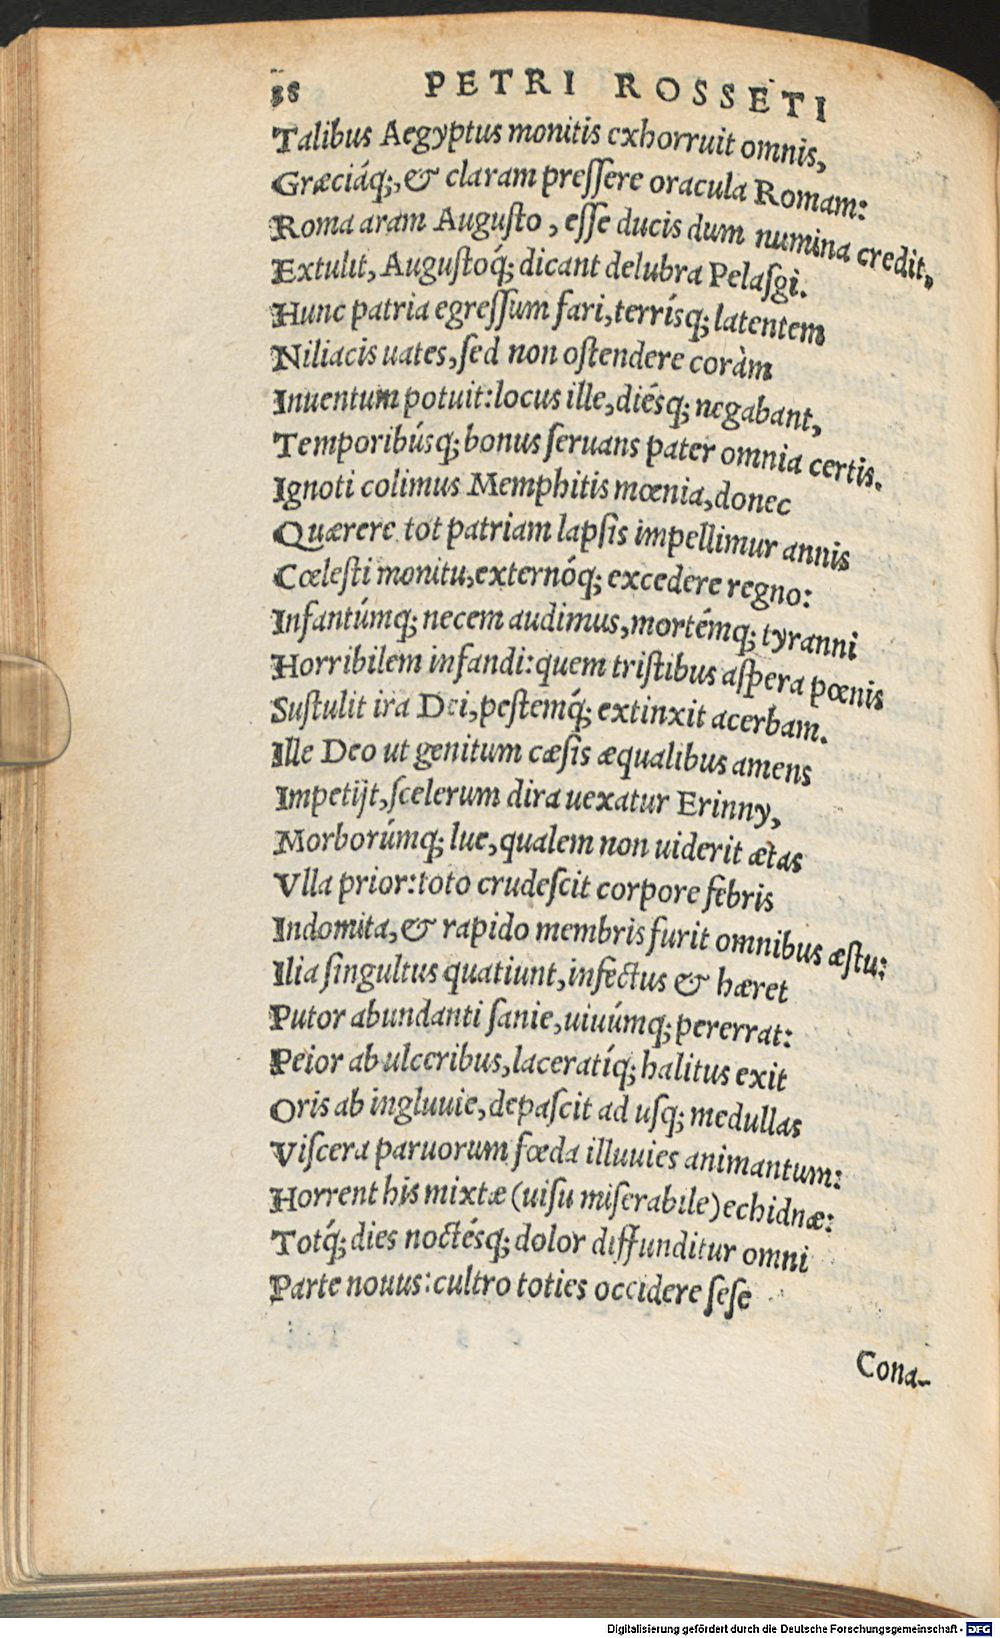 38 PETRI ROSSETI
Talibus Aegyptus monitis exhorruit omnis,
Græciáq;, & claram preſſere oracula Romam:
Roma aram Auguſto, eſſe ducis dum numina credit,
Extulit, Auguſtoq́; dicant delubra Pelaſgi.
Hunc patria egreſſum fari, terríſq; latentem
Niliacis uates, ſed non oſtendere coràm
Inuentum potuit: locus ille, diéſq; negabant,
Temporibúſq; bonus ſeruans pater omnia certis.
Ignoti colimus Memphitis mœnia, donec
Quærere tot patriam lapſis impellimur annis
Cœleſti monitu, externóq; excedere regno:
Infantúmq; necem audimus, mortémq; tyranni
Horribilem infandi: quem triſtibus aſpera pœnis
Suſtulit ira Dei, peſtemq́; extinxit acerbam.
Ille Deo ut genitum cæſis æqualibus amens
Impetijt, ſcelerum dira uexatur Erinny,
Morborúmq; lue, qualem non uiderit ætas
Vlla prior: toto crudeſcit corpore febris
Indomita, & rapido membris furit omnibus æſtu:
Ilia ſingultus quatiunt, infectus & hæret
Putor abundanti ſanie, uiuúmq; pererrat:
Peior ab ulceribus, laceratíq; halitus exit
Oris ab ingluuie, depaſcit ad uſq; medullas
Viſcera paruorum fœda illuuies animantum:
Horrent his mixtæ (uiſu miſerabile) echidnæ:
Totq́; dies noctéſq; dolor diffunditur omni
Parte nouus: cultro toties occidere ſeſe
Cona-
Digitalisierung gefördert durch die Deutsche Forschungsgemeinschaft - DFG